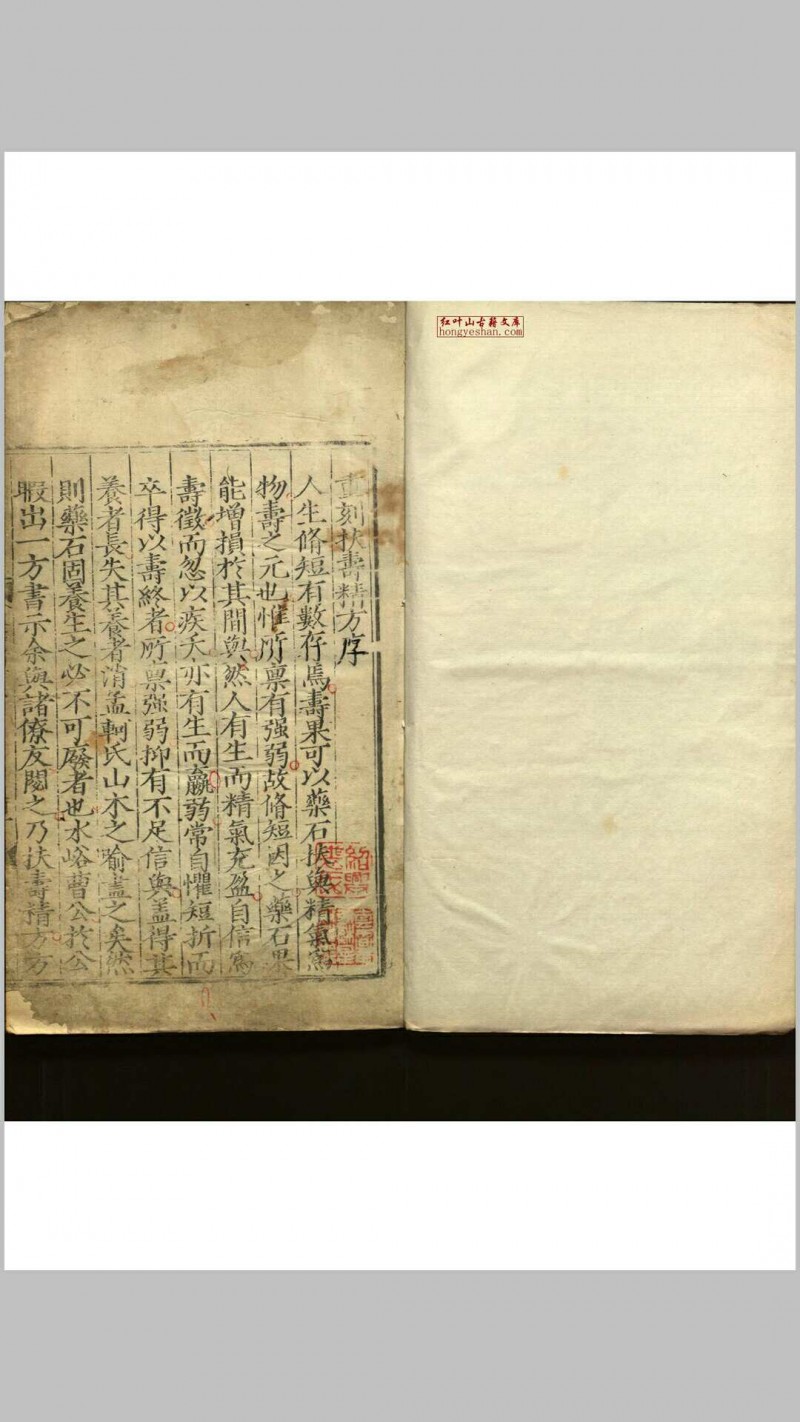 红叶山古籍文库
hongyeshan.com
重刻扶壽精方序
人生脩短有數存焉壽果可以藥石扶與精氣為
物壽之元也惟所稟有强弱故脩短因之藥石果
能增損於其間與然人有生而精氣充盈自信為
壽徵而忽以疾夭亦有生而羸弱常自懼短折而
卒得以壽終者所稟强弱抑有不足信與盖得其
養者長失其養者消孟軻氏山木之喻盡之矣然
則藥石固養生之必不可廢者也水峪曹公於公
暇出一方書示余與諸僚友閱之乃扶壽精方方